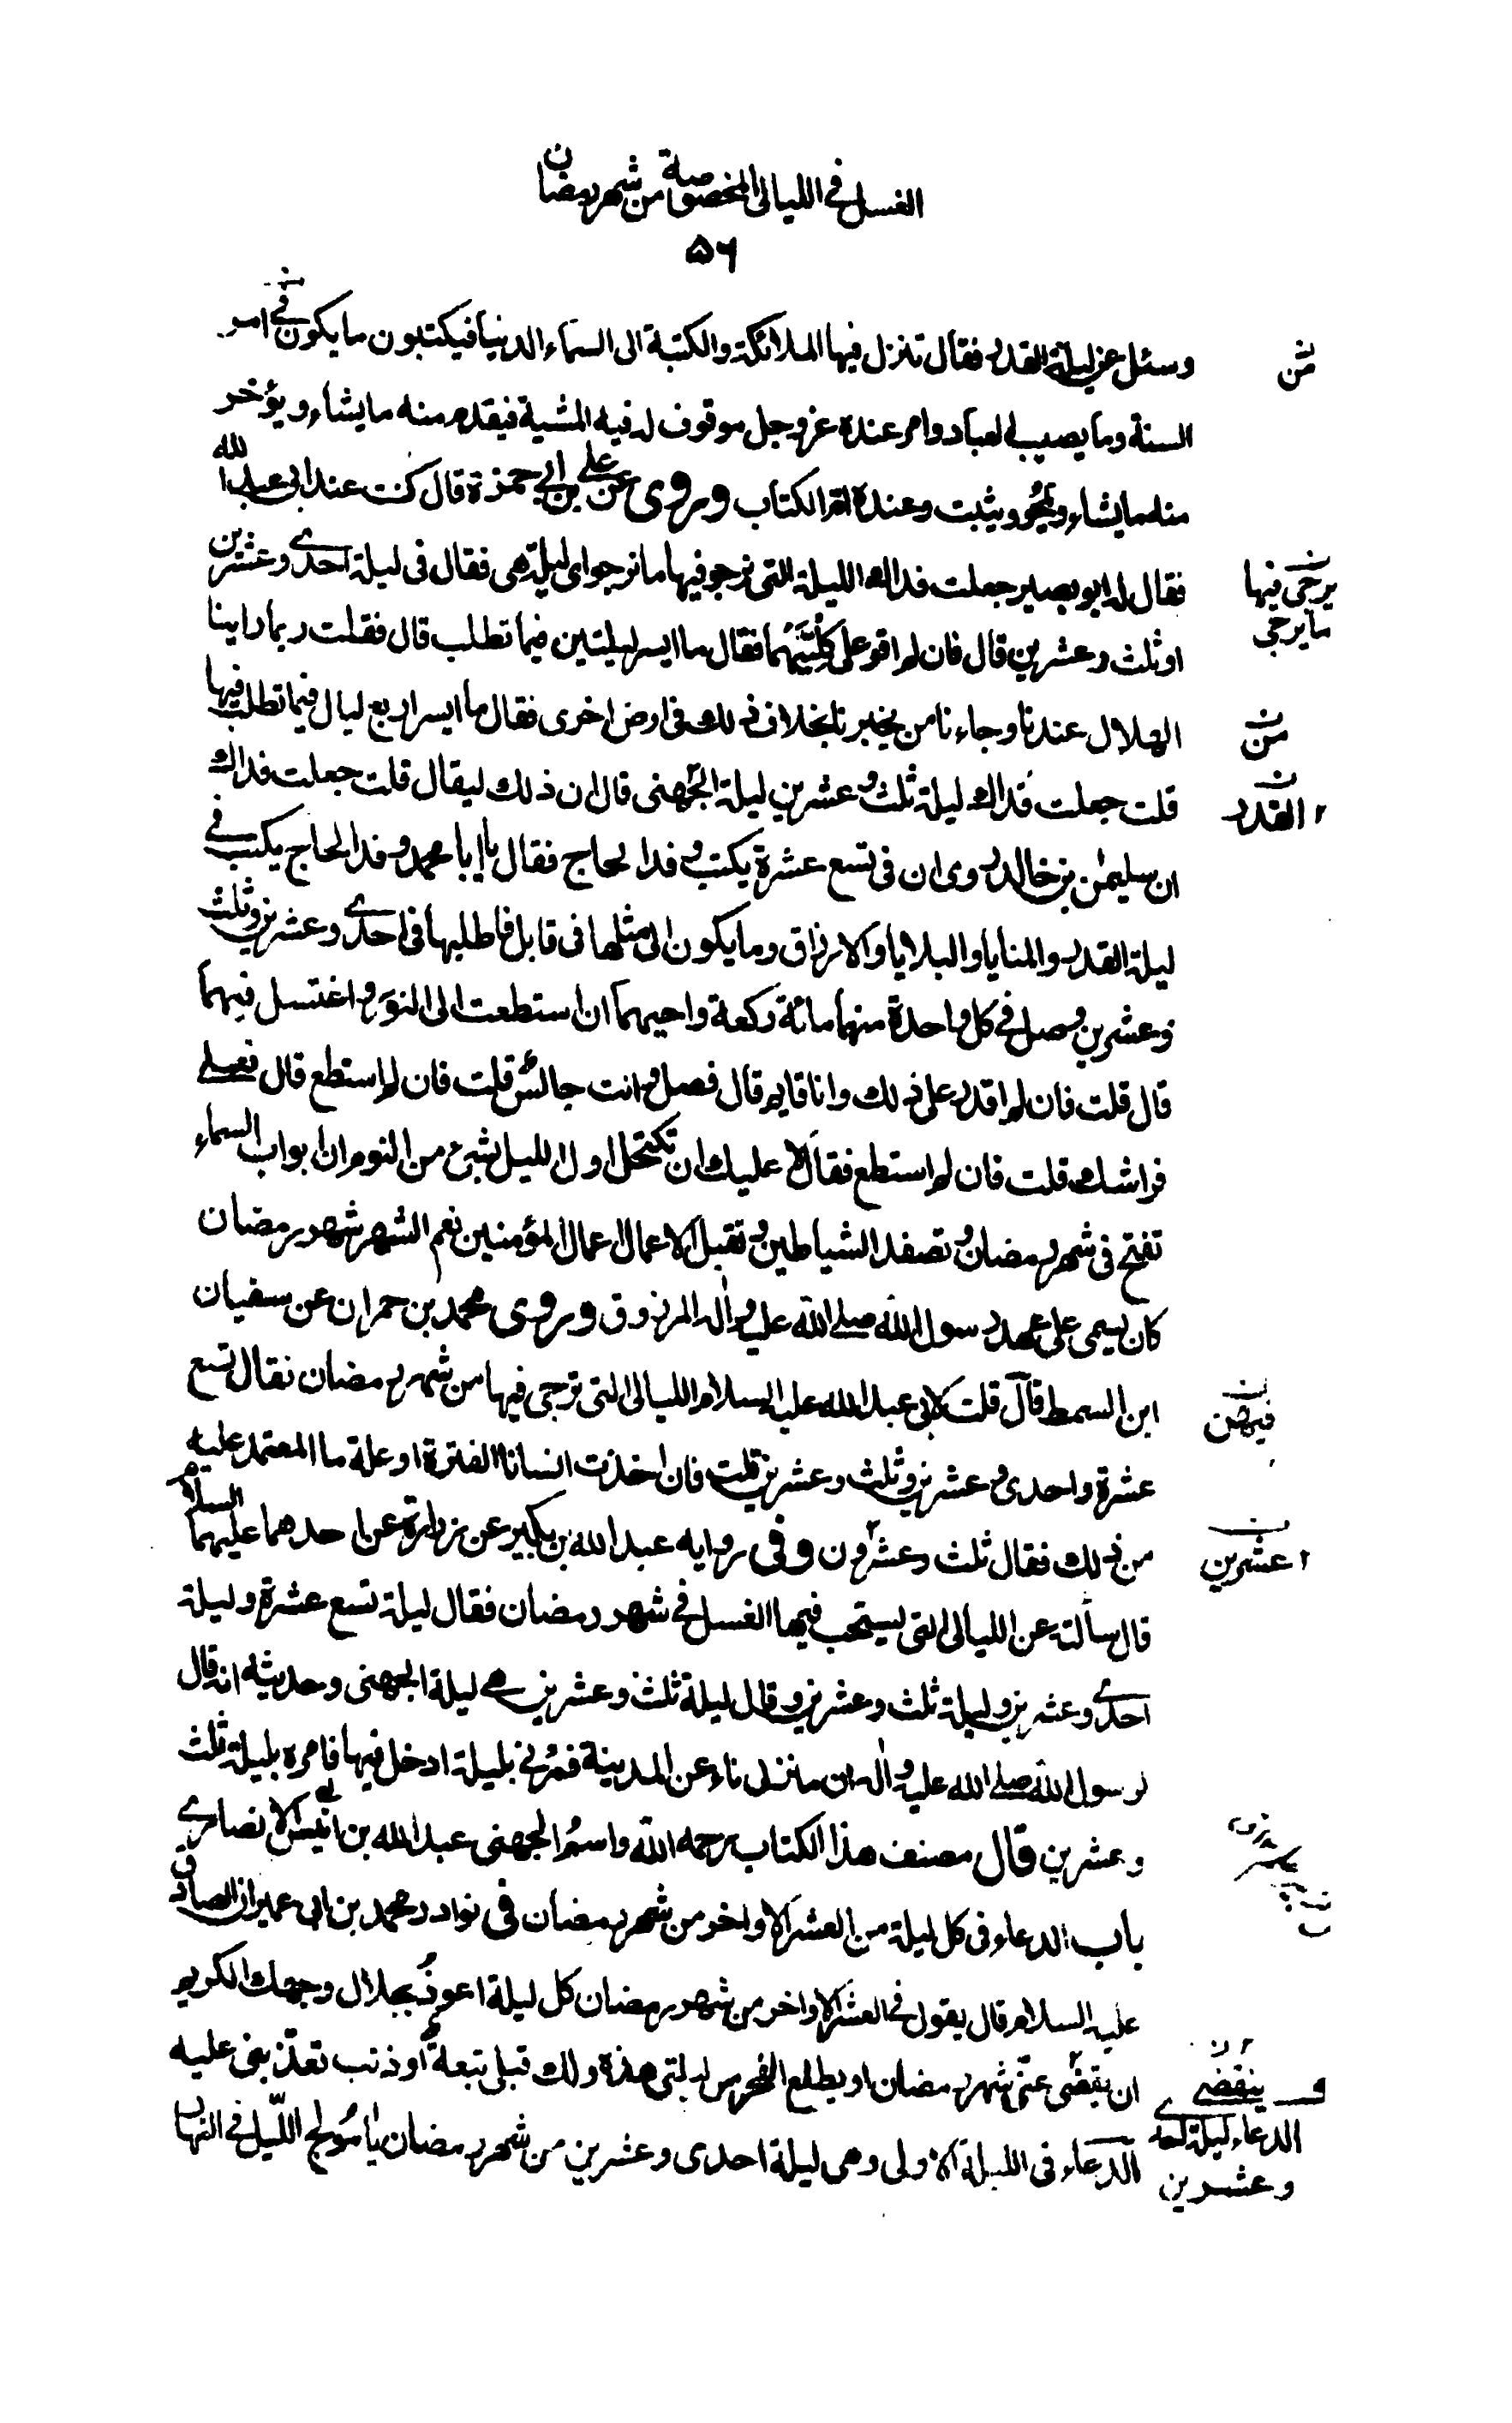 الغسل في الليالي المخصوصة من شهر رمضان
۵۶
وسئل عن ليلة القدر فقال تنزل فيها الملائكة والكتبة الى السماء الدنيا فيكتبون ما يكون في امر
من
السنة وما يصيب العباد وامر عنده عز وجل موقوف له فيه المشية فيقدم منه ما يشاء ويؤخر
منه ما يشاء ويمحو ويثبت وعنده ام الكتاب وروى عن علي بن ابي حمزة قال كنت عند ابي عبد الله
فقال له ابو بصير جعلت فداك الليلة التي نرجو فيها ما نرجو اى ليلة هي فقال في ليلة احدى وعشرين
يرجى فيها
ما يرجى
او ثلث وعشرين قال فان لم اقو على كلتيهما فقال ما ايسر ليلتين فيما تطلب قال فقلت ربما راينا
الهلال عندنا وجاءنا من يخبرنا بخلاف ذلك في ارض اخرى فقال ما ايسر اربع ليال فيما تطلب فيها
من
قلت جعلت فداك ليلة ثلث وعشرين ليلة الجهني قال ان ذلك ليقال قلت جعلت فداك
القدر
ان سليمن بن خالد روى ان في تسع عشرة يكتب وفد الحاج فقال يا ابا محمد وفد الحاج يكتب في
ليلة القدر والمنايا والبلايا والارزاق وما يكون الى مثلها في قابل فاطلبها في احدى وعشرين وثلث
وعشرين وصل في كل واحدة منهما مائة ركعة واحيهما ان استطعت الى النور واغتسل فيهما
قال قلت فان لم اقدر على ذلك وانا قايم قال فصل وانت جالس قلت فان لم استطع قال فعلى
فراشك قلت فان لم استطع فقال لا عليك ان تكتحل اول الليل بشئ من النوم ان ابواب السماء
تفتح في شهر رمضان وتصفد الشياطين وتقبل الاعمال اعمال المؤمنين نعم الشهر شهر رمضان
كان يسمى على عهد رسول الله صلى الله عليه واله المرزوق وروى محمد بن حمران عن سفيان
ابن السمط قال قلت لابي عبد الله عليه السلام الليالي التي ترجى فيها من شهر رمضان فقال تسع
فيهن
عشرة واحدى وعشرين وثلث وعشرين قلت فان اخذت انسانا الفترة او علة ما المعتمد عليه
من ذلك فقال ثلث وعشرون وفي رواية عبد الله بن بكير عن زرارة عن احدهما عليهما السلام
عشرين
قال سألته عن الليالي التي يستحب فيها الغسل في شهر رمضان فقال ليلة تسع عشرة وليلة
احدى وعشرين وليلة ثلث وعشرين وقال ليلة ثلث وعشرين هي ليلة الجهني وحديثه انه قال
لرسول الله صلى الله عليه واله ان منزلي ناء عن المدينة فمرني بليلة ادخل فيها فامره بليلة ثلث
وعشرين قال مصنف هذا الكتاب رحمه الله واسم الجهني عبد الله بن انيس الانصاري
باب الدعاء في كل ليلة من العشر الاواخر من شهر رمضان في نوادر محمد بن ابي عمير ان الصادق
عليه السلام قال يقول في العشر الاواخر من شهر رمضان كل ليلة اعوذ بجلال وجهك الكريم
ان يقضى عنى شهر رمضان او يطلع الفجر من ليلتي هذه ولك قبلي تبعة او ذنب تعذبني عليه
ينقضي
الدعاء في الليلة الاولى وهي ليلة احدى وعشرين من شهر رمضان يا مولج الليل في النهار
الدعاء ليلة احدى
وعشرين